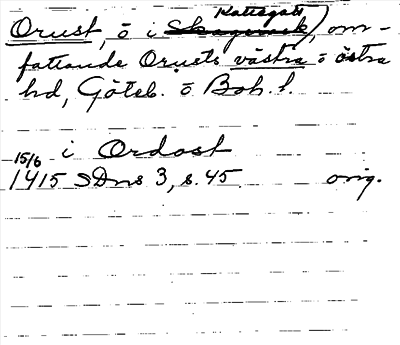 Kattegatt
Orust, ö i Skagerack, om-
fattande Orusts västra o östra
hd, Göteb. o Boh. l.
i Ordost
15/6
1415 SDns 3, s. 45. orig.